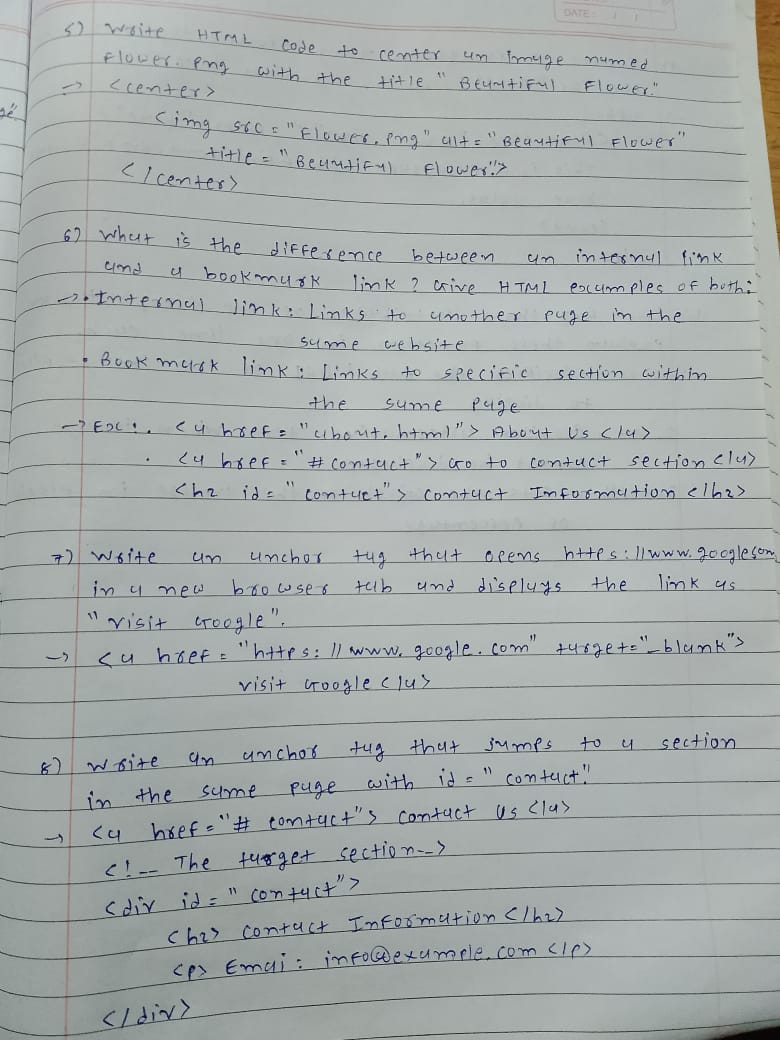 DATE: / /
5) Write HTML code to center an Image named
Flower.png with the title "Beautiful Flower."
→ <center>
<img src = "Flower.png" alt = "Beautiful Flower"
title = "Beautiful Flower">
</center>
6) What is the difference between an internal link
and a bookmark link? Give HTML examples of both:
→ • Internal link: Links to another page in the
same website
• Bookmark link: Links to specific section within
the same page
→ Ex: • <a href = "about.html"> About Us </a>
• <a href = "#contact"> Go to contact section </a>
<h2 id = "contact"> Contact Information </h2>
7) Write an anchor tag that opens https://www.google.com
in a new browser tab and displays the link as
"Visit Google".
→ <a href = "https://www.google.com" target="_blank">
Visit Google </a>
8) Write an anchor tag that jumps to a section
in the same page with id = "contact."
→ <a href = "# contact"> contact us </a>
<!-- The target section-->
<div id = "contact">
<h2> Contact Information </h2>
<p> Emai: info@example.com </p>
</div>